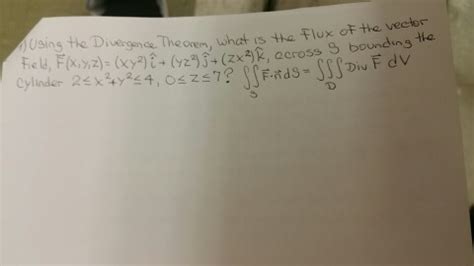 1) Using the Divergence Theorem, what is the Flux of the vector
Field, F⃗(x,y,z)= (xy²)î + (yz²)ĵ + (zx²)k̂, across S bounding the
Cylinder 2≤x²+y²≤4, 0≤z≤7? ∬_S F⃗·n⃗ dS = ∭_D Div F⃗ dV